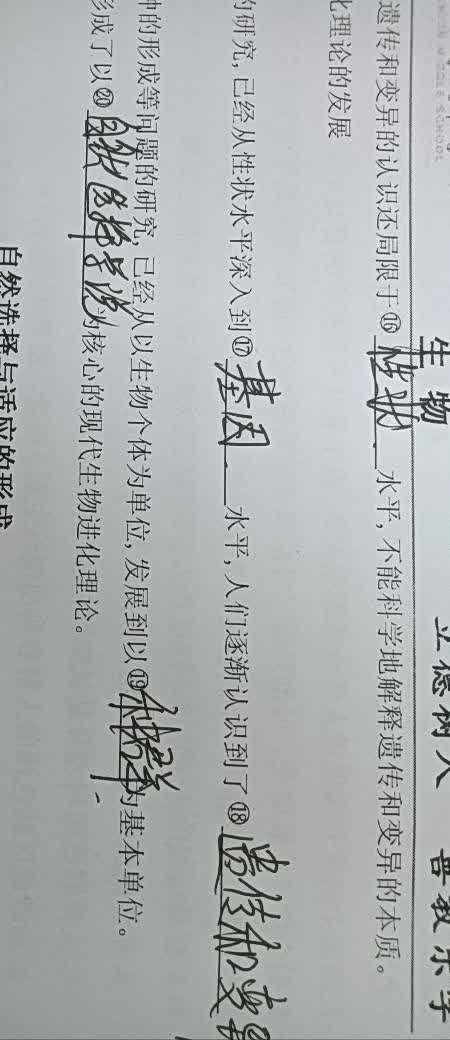 生物 立德树人 普教乐学
遗传和变异的认识还局限于⑯性状水平,不能科学地解释遗传和变异的本质。
化理论的发展
的研究,已经从性状水平深入到⑰基因水平,人们逐渐认识到了⑱遗传和变异
种的形成等问题的研究,已经从以生物个体为单位,发展到以⑲种群为基本单位。
形成了以⑳自然选择学说为核心的现代生物进化理论。
自然选择与适应的形成